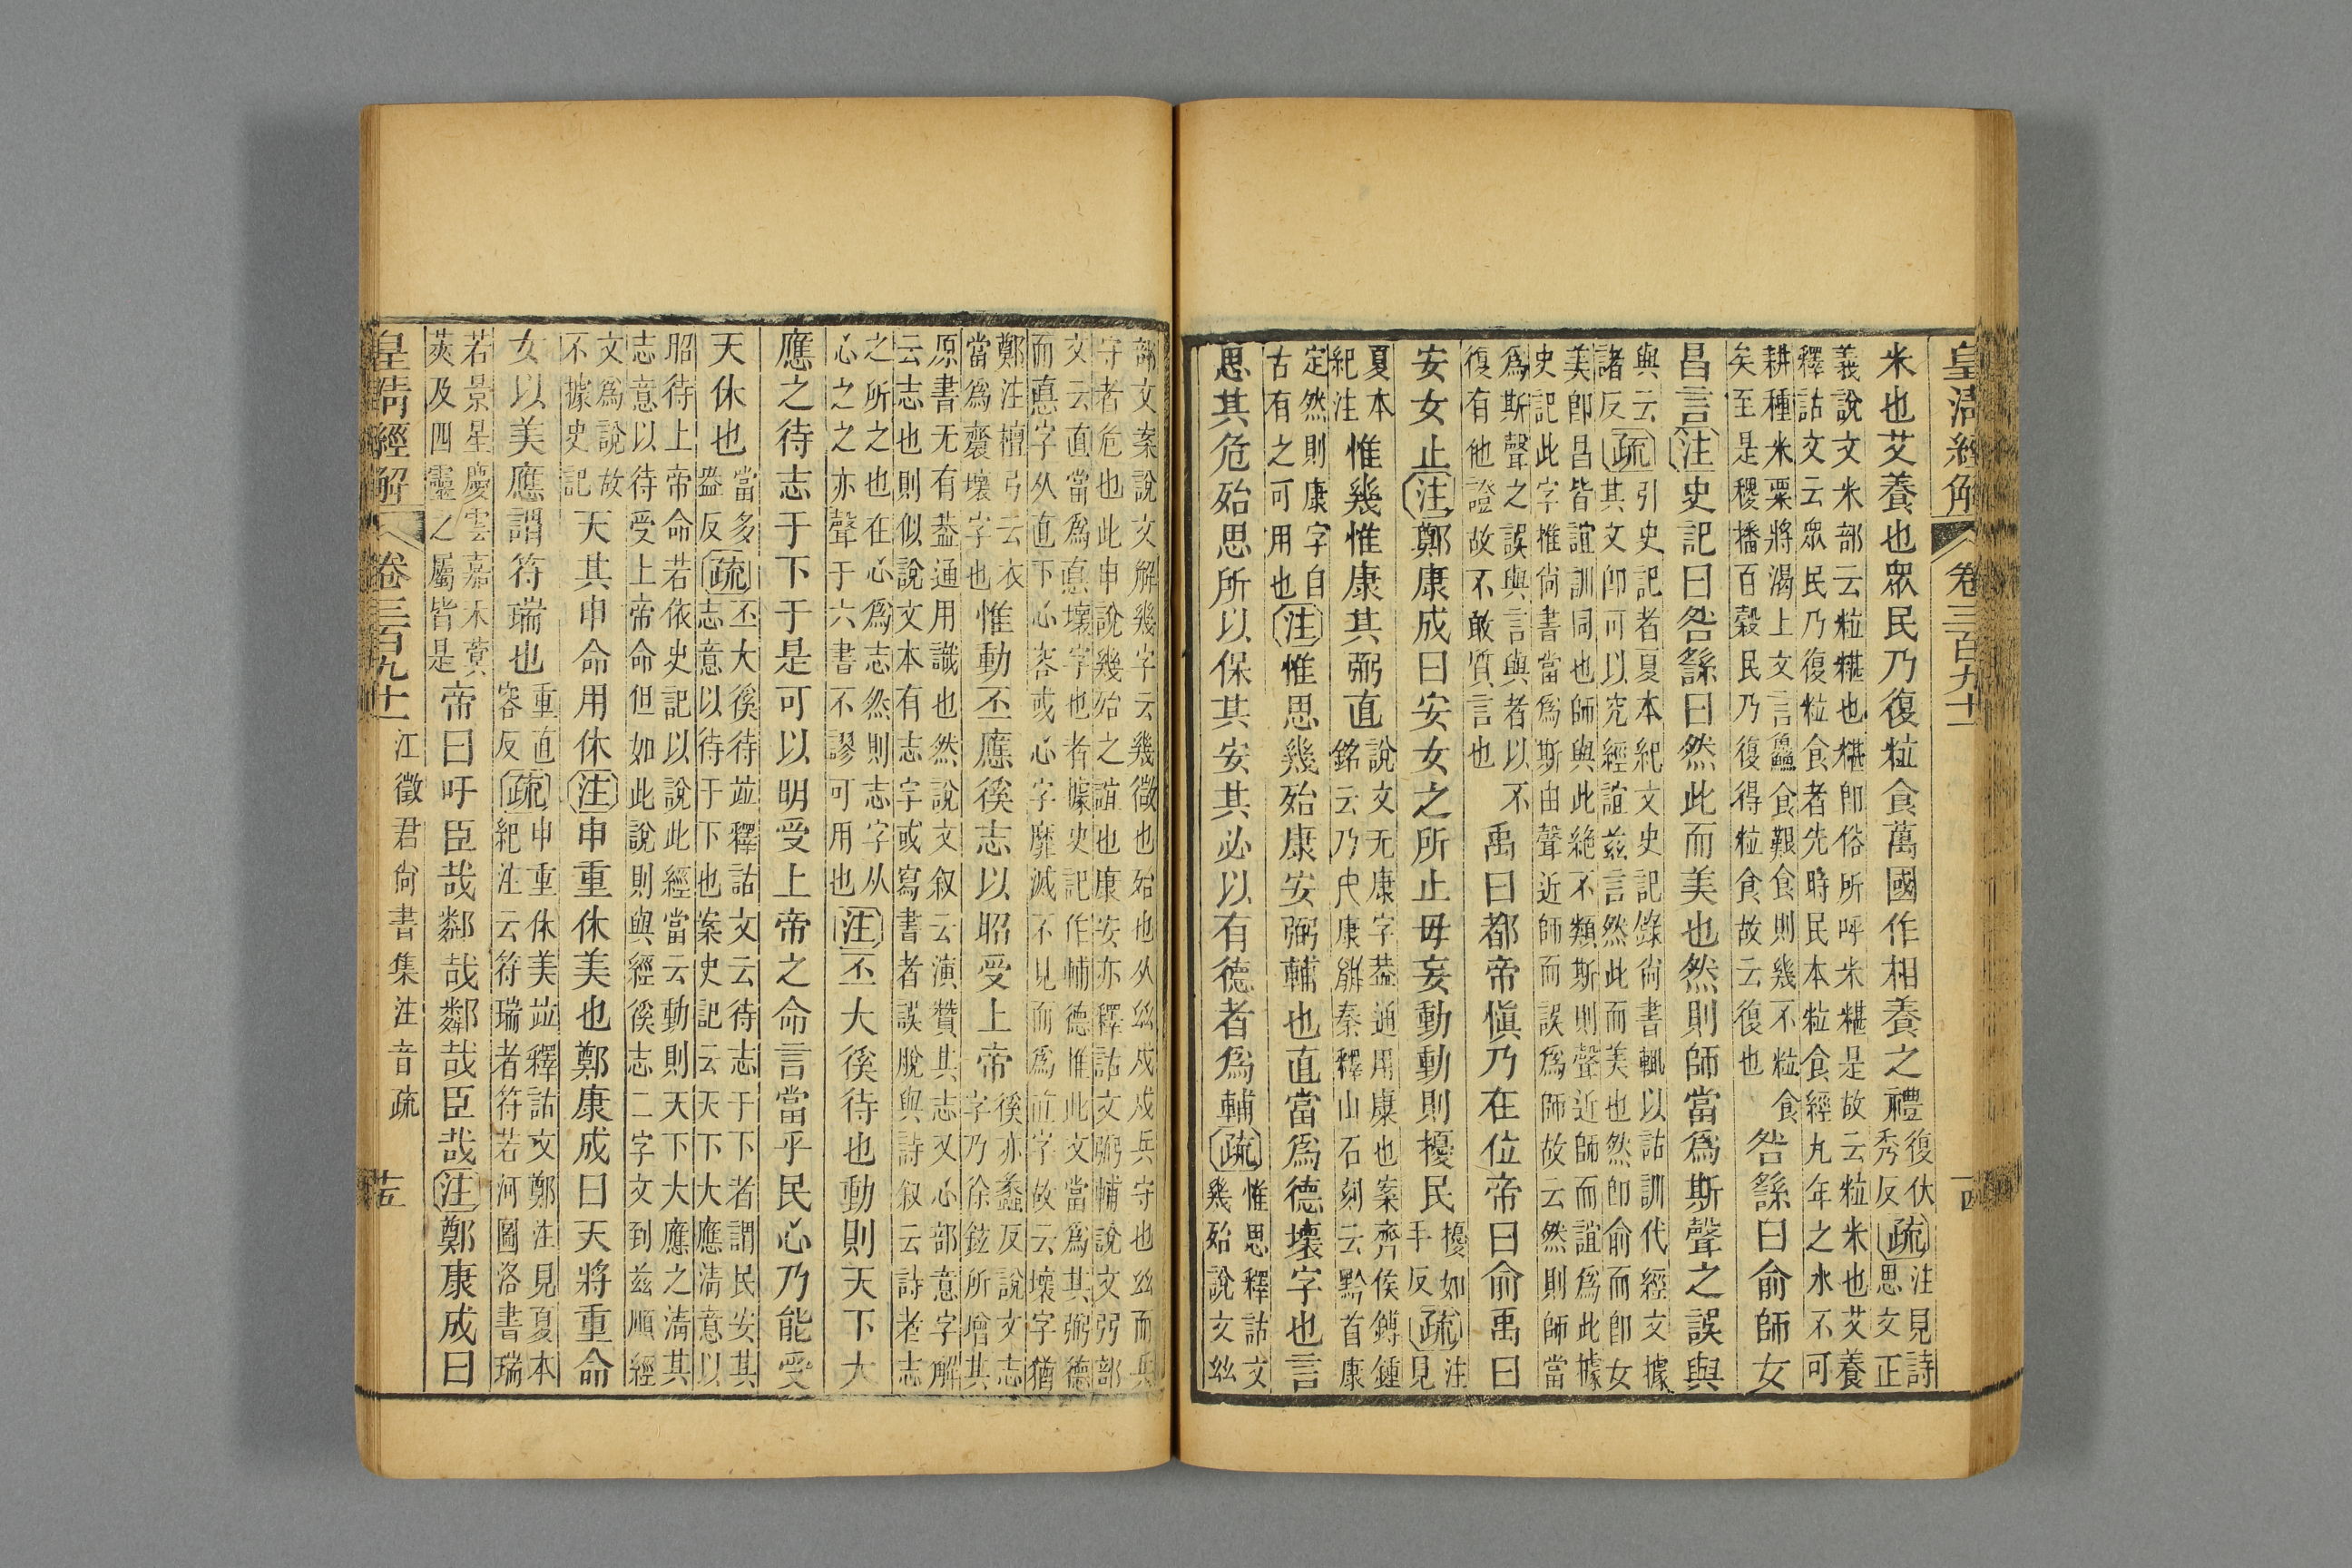 皇清經解 卷三百九十一 十四
米也艾養也眾民乃復粒食萬國作相養之禮復伏秀反疏注見詩思文正
義說文米部云粒糂也糂卽俗所呼米糂是故云粒米也艾養
釋詁文云眾民乃復粒食者先時民本粒食經九年之水不可
耕種米粟將渴上文言鱻食艱食則幾不粒食
矣至是稷播百穀民乃復得粒食故云復也
咎繇曰俞師女
昌言注史記曰咎繇曰然此而美也然則師當爲斯聲之誤與
與云諸反疏引史記者夏本紀文史記錄尙書輒以詁訓代經文據
其文卽可以究經誼茲言然此而美也然卽俞而卽女
美卽昌皆誼訓同也師與此絕不類斯則聲近師而誼爲此據
史記此字推尙書當爲斯由聲近師而誤爲師故云然則師當
爲斯聲之誤與言與者以不
復有他證故不敢質言也
禹曰都帝愼乃在位帝曰俞禹曰
安女止注鄭康成曰安女之所止毋妄動動則擾民擾如手反疏注見
夏本紀注惟幾惟康其弼直說文无康字葢通用穅也案齊侯鎛鍾
銘云乃尸康龢秦釋山石刻云黔首康
定然則康字自
古有之可用也
注惟思幾殆康安弼輔也直當爲德壞字也言
思其危殆思所以保其安其必以有德者爲輔疏惟思釋詁文
幾殆說文𢆶
部文案說文解幾字云幾微也殆也从𢆶戍戍兵守也𢆶而兵
守者危也此申說幾殆之誼也康安亦釋詁文弼輔說文弜部
文云直當爲悳壞字也者據史記作輔德惟此文當爲其弼德
而悳字从直下心容或心字靡滅不見而爲直字故云壞字猶
鄭注檀弓云衣
當爲齎壞字也
惟動丕應徯志以昭受上帝徯亦蠡反說文志
字乃徐鉉所增其
原書无有葢通用識也然說文叙云演贊其志又心部意字解
云志也則似說文本有志字或寫書者誤脫與詩叙云詩者志
之所之也在心爲志然則志字从
心之之亦聲于六書不謬可用也
注丕大徯待也動則天下大
應之待志于下于是可以明受上帝之命言當乎民心乃能受
天休也當多益反疏丕大徯待竝釋詁文云待志于下者謂民安其
志意以待于下也案史記云天下大應淸意以
昭待上帝命若依史記以說此經當云動則天下大應之淸其
志意以待受上帝命但如此說則與經徯志二字文到茲順經
文爲說故
不據史記
天其申命用休注申重休美也鄭康成曰天將重命
女以美應謂符瑞也重直容反疏申重休美竝釋詁文鄭注見夏本
紀注云符瑞者符若河圖洛書瑞
若景星慶雲嘉禾蓂
莢及四靈之屬皆是
帝曰吁臣哉鄰哉鄰哉臣哉注鄭康成曰
皇清經解 卷三百九十一 江徵君尙書集注音疏 十五